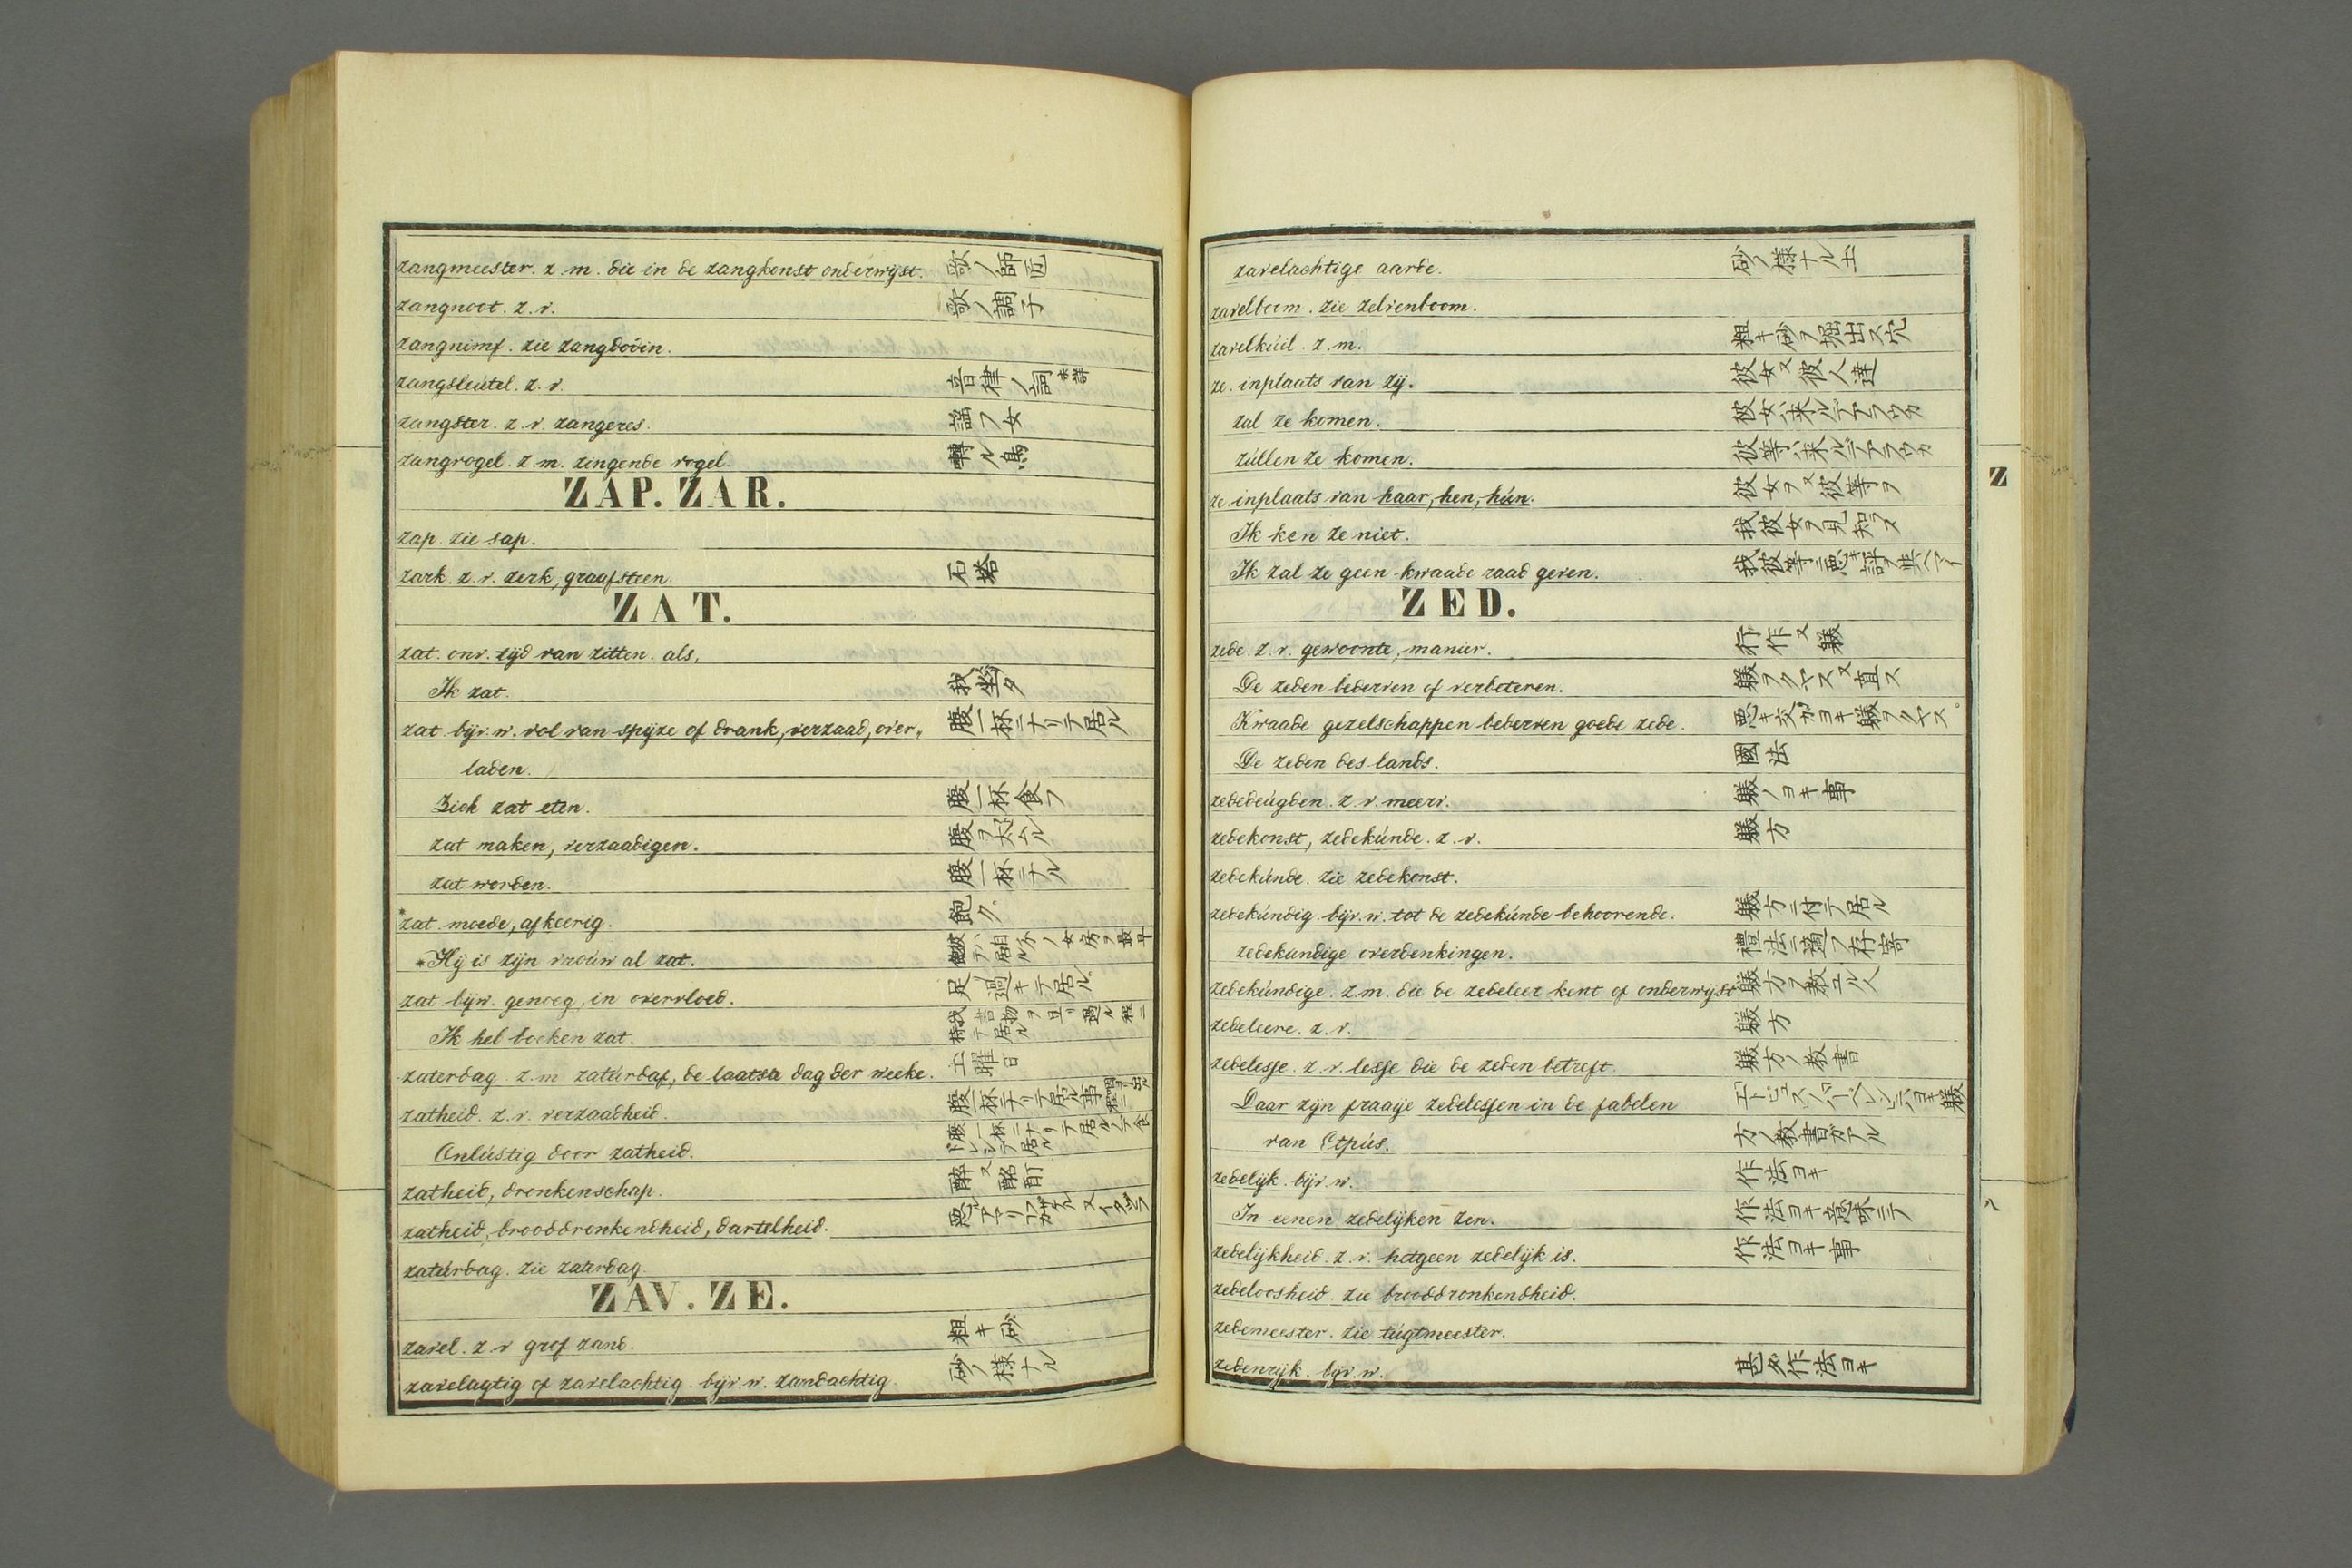 zangmeester. z. m. die in de zangkonst onderwijst. 歌ノ師匠
zangnoot. z. v. 歌ノ調子
zangnimf. zie zanggodin.
zangsleútel. z. v. 音律ノ詞 未詳
zangster. z. v. zangeres. 謡フ女
zangvogel. z. m. zingende vogel. 囀ル鳥
ZAP. ZAR.
zap. zie sap.
zark. z. v. zerk, graafsteen. 石塔
ZAT.
zat. onv. tijd van zitten. als,
Ik zat. 我坐タ
zat. bijv. w. vol van spijze of drank, verzaad, over„ 腹一杯ニナリテ居ル
laden.
Zich zat eten. 腹一杯食フ
zat maken, verzaadigen.
zat worden. 腹一杯ニナル
*zat. moede, afkeerig. 飽ク
*Hij is zijn vrouw al zat.
zat. bijw. genoeg, in overvloed. 足過キテ居ル
Ik heb boeken zat.
zaterdag. z. m. zatúrdag, de laatste dag der weeke. 土曜日
zatheid. z. v. verzaadheid. 腹一杯ニナリテ居ル事
Onlústig door zatheid.
zatheid, dronkenschap. 醉又酩酊
zatheid, brooddronkendheid, dartelheid.
zatúrdag. zie zaterdag.
ZAV. ZE.
zavel. z. v. grof zand. 粗キ砂
zavelagtig of zavelachtig. bijv. w. zandachtig. 砂ノ様ナル
zavelachtige aarde. 砂ノ様ナル土
zavelboom. zie zelvenboom.
zavelkúil. z. m. 粗キ砂ヲ堀出ス穴
ze. inplaats van zij. 彼女又彼人達
zal ze komen. 彼女ハ来ルデアラウカ
zúllen ze komen. 彼等ハ来ルデアラウカ
ze. inplaats van haar, hen, hún. 彼女ヲ又彼等ヲ
Ik ken ze niet. 我彼女ヲ見知ラヌ
Ik zal ze geen kwaade raad geven.
ZED.
zede. z. v. gewoonte, manier. 行作又躾
De zeden bederven of verbeteren. 躾ヲクヤス又直ス
Kwaade gezelschappen bederven goede zede. 悪キ交ガヨキ躾ヲクヤス
De zeden des lands. 國法
zededeúgden. z. v. meerv. 躾ノヨキ事
zedekonst, zedekúnde. z. v. 躾方
zedekúnde. zie zedekonst.
zedekúndig. bijv. w. tot de zedekúnde behoorende. 躾方ニ付テ居ル
zedekundige overdenkingen. 禮法ニ適フ存寄
zedekúndige. z. m. die de zedeleer kent of onderwijst. 躾方ヲ教ユル人
zedeleere. z. v. 躾方
zedelesse. z. v. lesse die de zeden betreft. 躾方ノ教書
Daar zijn fraaije zedelessen in de fabelen
van Etpús. 方ノ教書ガアル
zedelijk. bijv. w. 作法ヨキ
In eenen zedelijken zen. 作法ヨキ意味ニテ
zedelijkheid. z. v. hetgeen zedelijk is. 作法ヨキ事
zedeloosheid. zie brooddronkendheid.
zedemeester. zie túgtmeester.
zedenrijk. bijv. w. 甚タ作法ヨキ
Z